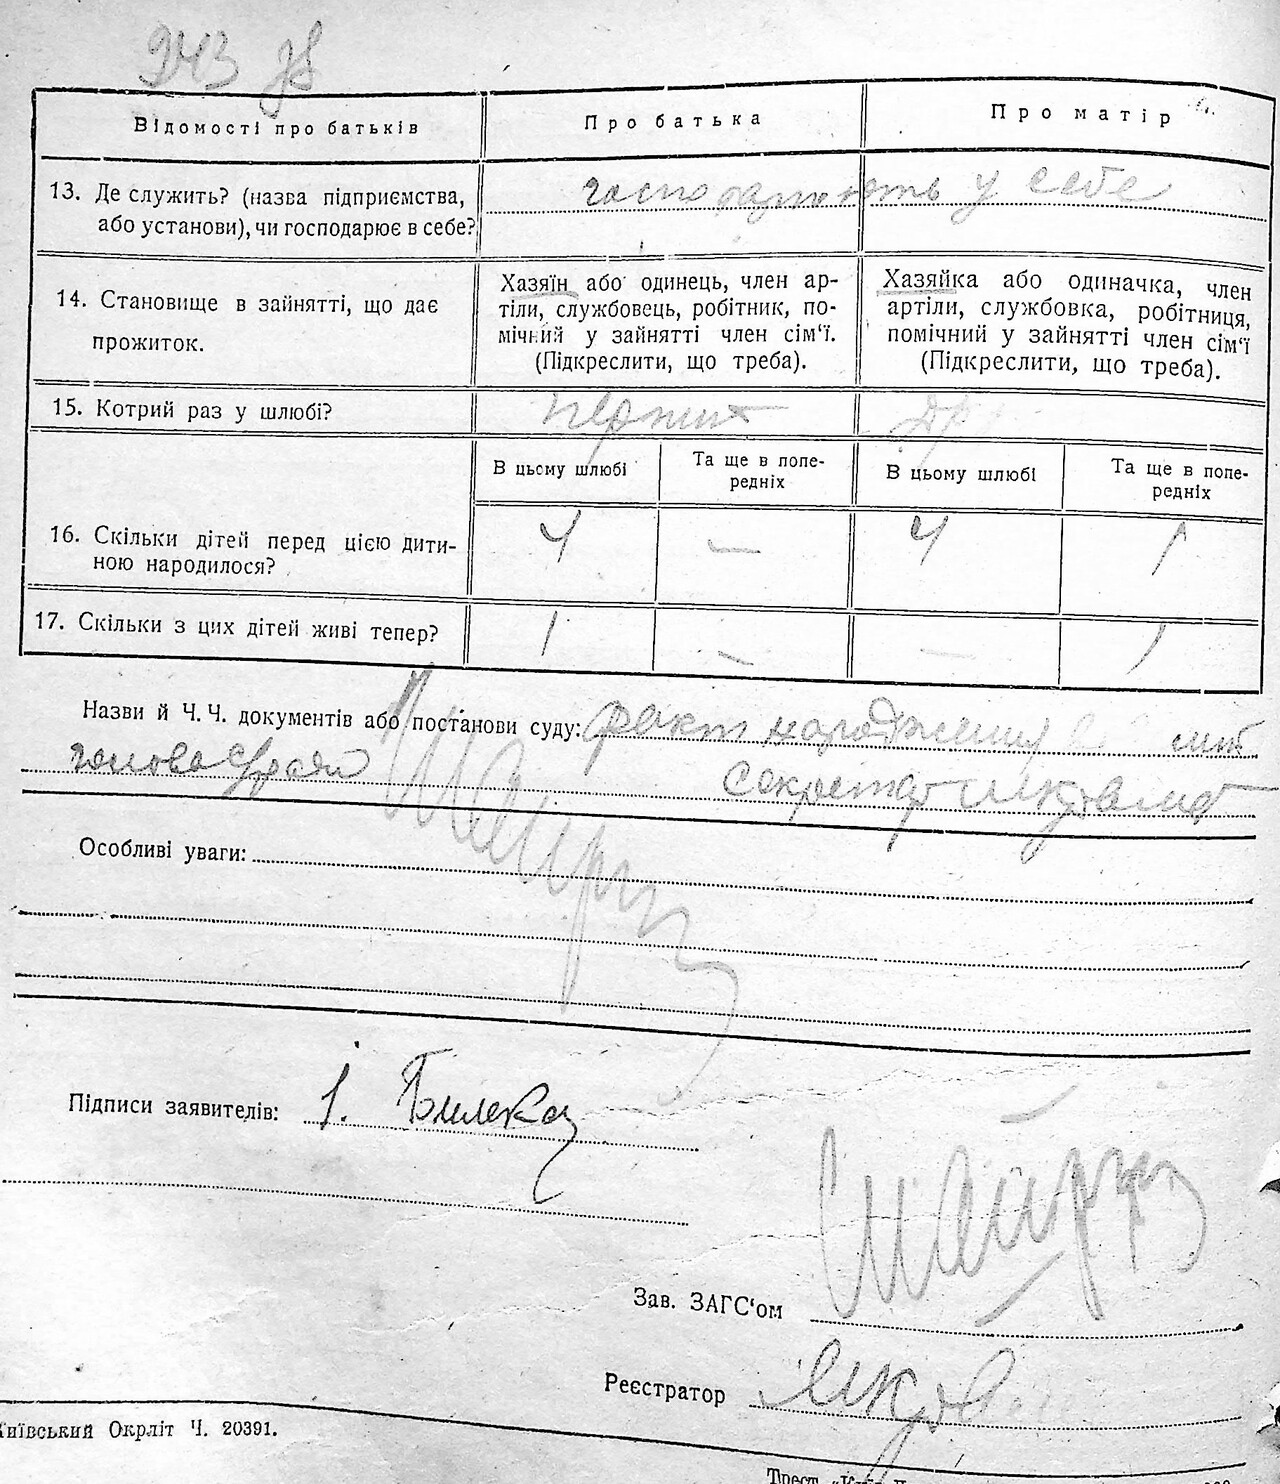 243 зв
Відомості про батьків
Про батька
Про матір
13. Де служить? (назва підприємства,
або установи), чи господарює в себе?
господарюють у себе
14. Становище в зайнятті, що дає
прожиток.
Хазяїн або одинець, член ар-
тіли, службовець, робітник, по-
мічний у зайнятті член сім'ї.
(Підкреслити, що треба).
Хазяйка або одиначка, член
артіли, службовка, робітниця,
помічний у зайнятті член сім'ї
(Підкреслити, що треба).
15. Котрий раз у шлюбі?
В цьому шлюбі
Та ще в попе-
редніх
В цьому шлюбі
Та ще в попе-
редніх
16. Скільки дітей перед цією дити-
ною народилося?
4 — 4 1
17. Скільки з цих дітей живі тепер?
1 — — 1
Назви й Ч. Ч. документів або постанови суду: факт народження
голова с/ради секретар
Особливі уваги:
Підписи заявителів: І.
Зав. ЗАГС'ом
Реєстратор
Київський Окрліт Ч. 20391.
Трест